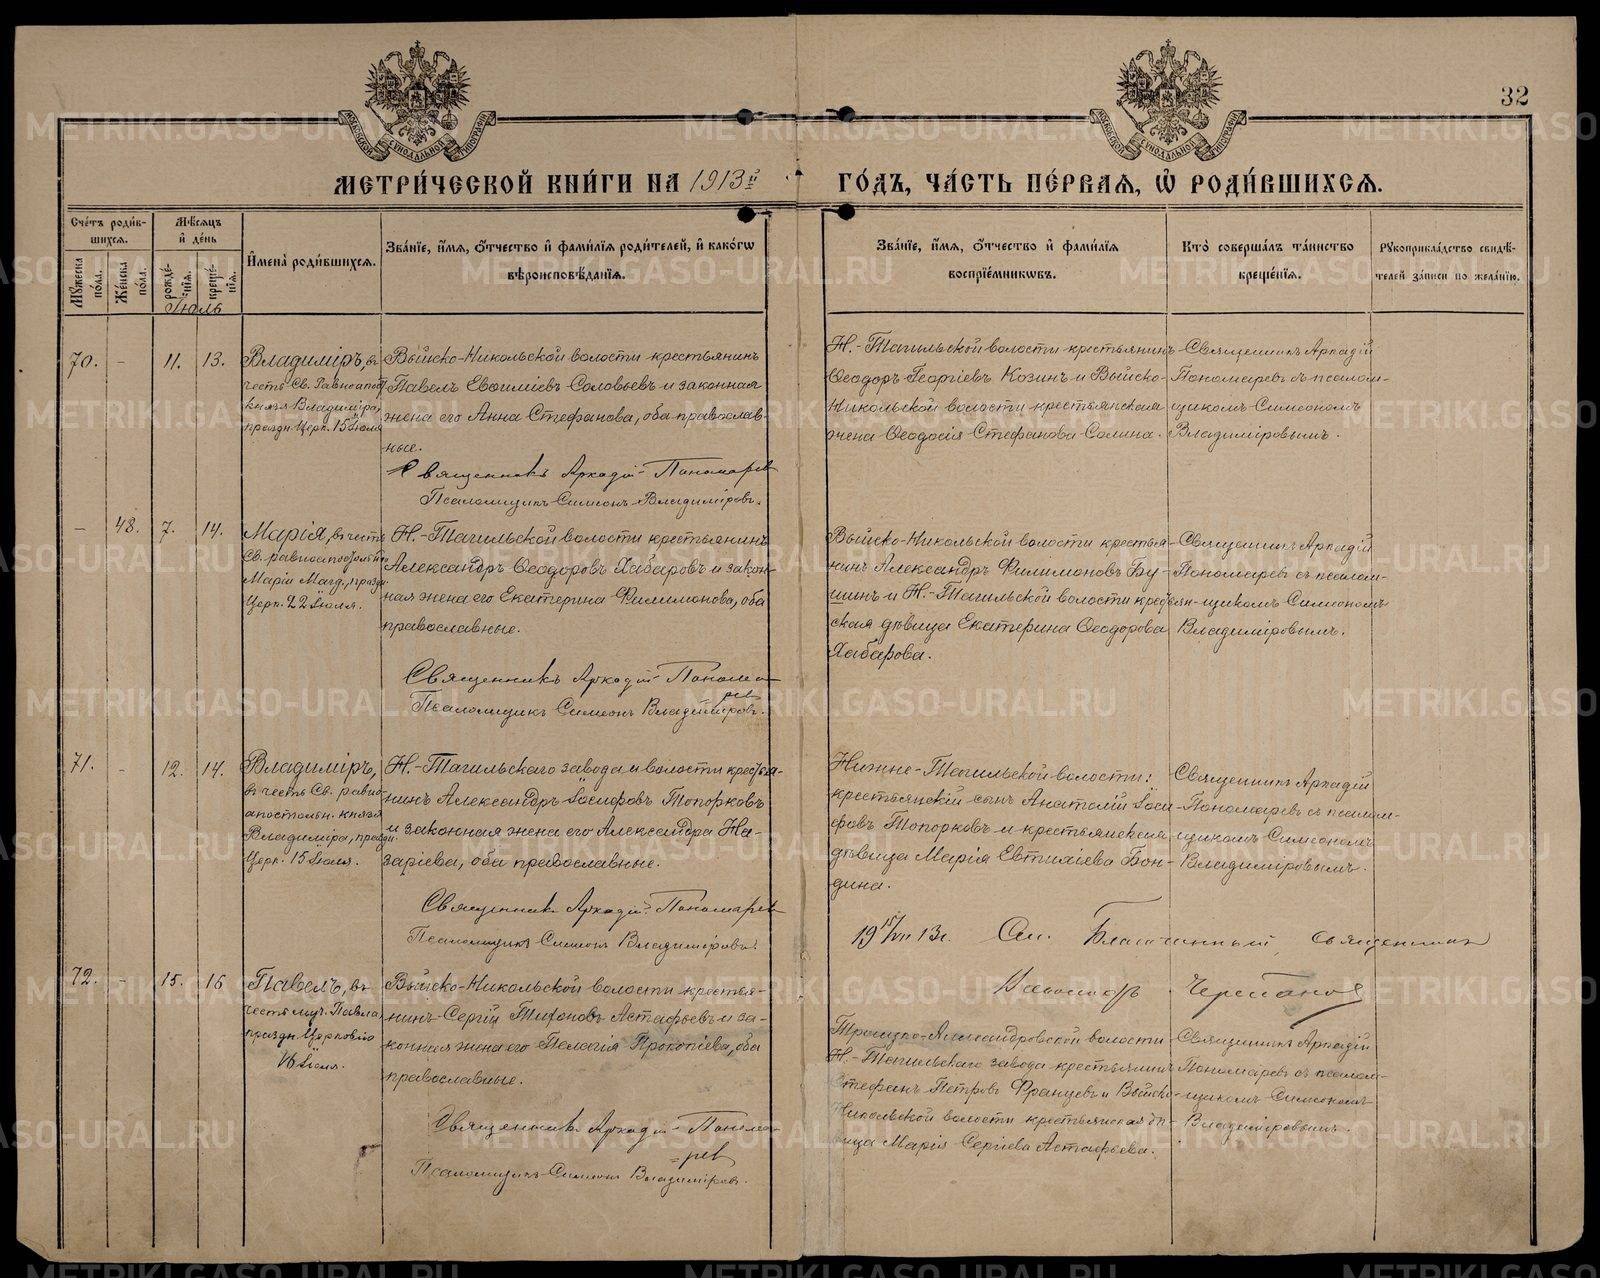 32
МОСКОВСКОЙ СУНОДАЛЬНОЙ ТИПОГРАФІИ
МОСКОВСКОЙ СУНОДАЛЬНОЙ ТИПОГРАФІИ
МЕТРИ́ЧЕСКОЙ КНИ́ГИ НА 1913й ГО́ДЪ, ЧА́СТЬ ПЕ́РВАЯ, Ѡ҆ РОДИ́ВШИХСЯ.
Сче́тъ роди́в-
шихся.
Мꙋ́жеска по́ла.
Же́нска по́ла.
Мѣ́сяцъ
и҆ де́нь
рожде́-
нія.
креще́-
нія.
И҆мена̀ роди́вшихся.
Зва́ніе, и҆́мя, ѻ҆́тчество и҆ фами́лія роди́телей, и҆ како́гѡ
вѣроисповѣ́данія.
Зва́ніе, и҆́мя, ѻ҆́тчество и҆ фами́лія
воспріе́мникѡвъ.
Кто̀ соверша́лъ та́инство
креще́нія.
Рꙋкоприкла́дство свидѣ́-
телей за́писи по жела́нію.
Іюль
70. - 11. 13.
Владиміръ, въ
честь Св. Равноапост.
князя Владиміра,
праздн. Церк. 15 Іюля
Выйско-Никольской волости крестьянинъ
Павелъ Евѳиміевъ Соловьевъ и законная
жена его Анна Стефанова, оба православ-
ные.
Священникъ Аркадій Пономарев
Псаломщикъ Симеонъ Владиміровъ.
Н.-Тагильской волости крестьянинъ
Ѳеодоръ Георгіевъ Козинъ и Выйско-
Никольской волости крестьянская
жена Ѳеодосія Стефанова Солина.
Священникъ Аркадій
Пономаревъ съ псалом-
щикомъ Симеономъ
Владиміровымъ.
- 48. 7. 14.
Марія, въ честь
Св. равноапостольн.
Маріи Магд., праздн.
Церк. 22 Іюля.
Н.-Тагильской волости крестьянинъ
Александръ Ѳеодоровъ Хабаровъ и закон-
ная жена его Екатерина Филимонова, оба
православные.
Священникъ Аркадій Понома
рев
Псаломщикъ Симеонъ Владиміровъ.
Выйско-Никольской волости крестья-
нинъ Александръ Филимоновъ Бу-
шинъ и Н.-Тагильской волости крестьян-
ская дѣвица Екатерина Ѳеодорова
Хабарова.
Священникъ Аркадій
Пономаревъ съ псалом-
щикомъ Симеономъ
Владиміровымъ.
71. - 12. 14.
Владиміръ,
въ честь Св. равно-
апостольн. князя
Владиміра, праздн.
Церк. 15 Іюля.
Н.-Тагильскаго завода и волости крестья-
нинъ Александръ Іосифовъ Топорковъ
и законная жена его Александра На-
заріева, оба православные.
Священникъ Аркадій Пономарев
Псаломщикъ Симеонъ Владиміровъ.
Нижне-Тагильской волости:
крестьянскій сынъ Анатолій Іоси-
фовъ Топорковъ и крестьянская
дѣвица Марія Евтихіева Бон-
дина.
Священникъ Аркадій
Пономаревъ съ псалом-
щикомъ Симеономъ
Владиміровымъ.
19 15/VII 13 г. См. Благочинный, священник
Черепанов
72. - 15. 16
Павелъ, въ
честь муч. Павла,
праздн. Церковію
16 Іюля.
Выйско-Никольской волости крестья-
нинъ Сергій Тихоновъ Астафьевъ и за-
конная жена его Пелагія Прокопіева, оба
православные.
Священник Аркадій Понома
=рев
Псаломщикъ Симеонъ Владиміровъ.
Троицко-Александровской волости
Н.-Тагильскаго завода крестьянинъ
Стефанъ Петровъ Францевъ и Выйско-
Никольской волости крестьянская дѣ-
вица Марія Сергіева Астафьева.
Священникъ Аркадій
Пономаревъ съ псалом-
щикомъ Симеономъ
Владиміровымъ.
METRIKI.GASO-URAL.RU